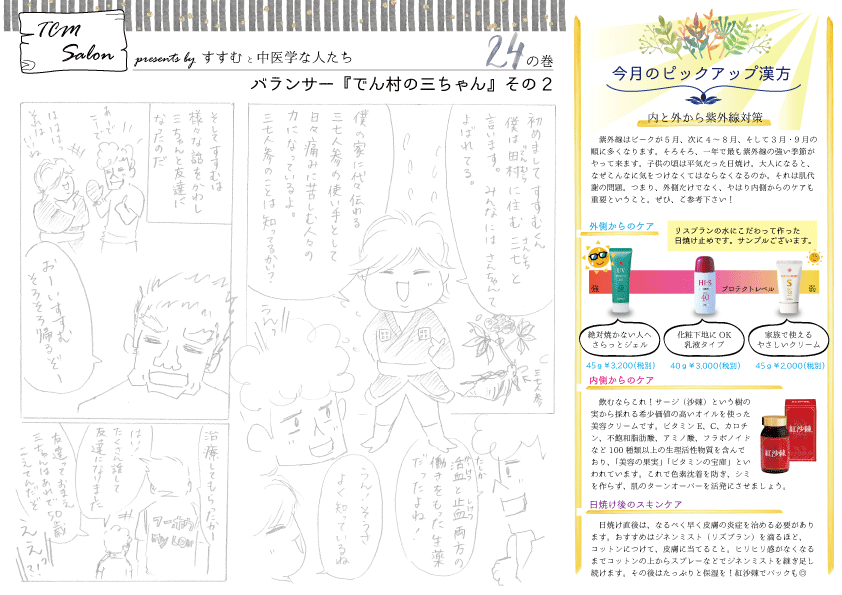 TCM
Salon
presents by すすむと中医学な人たち
24の巻
バランサー『でん村の三ちゃん』その2
初めまして すすむくん
僕は田村に住む 三七と
でんむら
さんしち
言います。みんなには さんちゃんて
よばれてる。
僕の家に代々伝わる
三七人参の使い手として
日々痛みに苦しむ人々の
力になっているよ。
三七人参のことは知ってるかい？
三七人参
たしか
活血と止血両方の
働きをもった生薬
だったよね！
よく知っているね
そしてすすむは
様々な話をかわし
三ちゃんと友達に
なったのだ
おーいすすむ
そろそろ帰るぞー
治療してもらったかー
はい！
たくさん話して
友達になりました
三ちゃんはあれで、50歳
こえてんだぞ
ええ?!!
今月のピックアップ漢方
内と外から紫外線対策
紫外線はピークが5月、次に4～8月、そして3月・9月の
順に多くなります。そろそろ、一年で最も紫外線の強い季節が
やって来ます。子供の頃は平気だった日焼け。大人になると、
なぜこんなに気をつけなくてはならなくなるのか。それは肌代
謝の問題。つまり、外側だけでなく、やはり内側からのケアも
重要ということ。ぜひ、ご参考下さい！
外側からのケア
リスブランの水にこだわって作った
日焼け止めです。サンプルございます。
強
プロテクトレベル
弱
UV
HI-S
40
S
絶対焼かない人へ
さらっとジェル
化粧下地にOK
乳液タイプ
家族で使える
やさしいクリーム
45g¥3,200(税別)
40g¥3,000(税別)
45g¥2,000(税別)
内側からのケア
飲むならこれ！サージ（沙棘）という樹の
実から採れる希少価値の高いオイルを使った
美容クリームです。ビタミンE、C、カロチ
ン、不飽和脂肪酸、アミノ酸、フラボノイド
など100種類以上の生理活性物質を含んで
おり、「美容の果実」「ビタミンの宝庫」とい
われています。これで色素沈着を防ぎ、シミ
を作らず、肌のターンオーバーを活発にさせましょう。
紅沙棘
紅沙棘
日焼け後のスキンケア
日焼け直後は、なるべく早く皮膚の炎症を治める必要があり
ます。おすすめはジネンミスト（リズブラン）を滴るほど、
コットンにつけて、皮膚に当てること。ヒリヒリ感がなくなる
までコットンの上からスプレーなどでジネンミストを継ぎ足し
続けます。その後はたっぷりと保湿を！紅沙棘でパックも◎